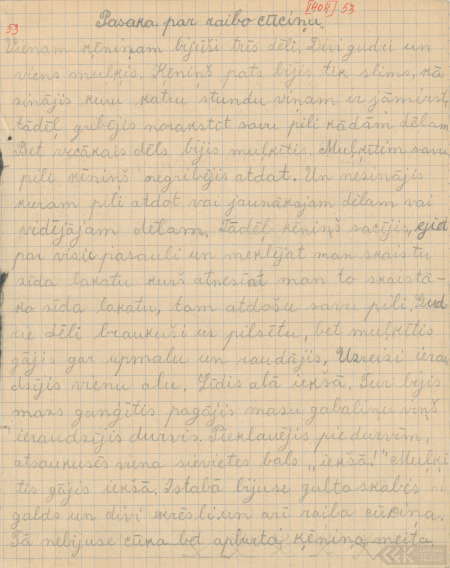 [404] 53
53
Pasaka par raibo cūciņu.
Vienam ķēniņam bijuši trīs dēli. Divi gudri un
viens muļķis. Ķēniņš pats bijis tik slims, kā
zinājis kuru katru stundu viņam ir jāmirst,
tādēļ gribējis norakstīt savu pili kādam dēlam.
Bet vecākais dēls bijis muļķītis. Muļķītim savu
pili ķēniņš negribējis atdat. Un nezinājis
kuram pili atdot vai jaunākajam dēlam vai
vidējājam dēlam. Tādēļ ķēniņš sacījis, ejiet
par visu pasauli un meklējat man skaistu
zīda lakatu kurš atnesīat man to skaistā-
ko zīda lakatu, tam atdošu savu pili. Gud
rie dēli braukuši uz pilsētu, bet muļķītis
gājis gar upmalu un raudājis. Uzreizi ierau
dzījis vienu alu. Līdis alā iekšā. Tur bijis
mazs gaņģītis pagājis mazu gabaliņu viņš
ieraudzījis durvis. Pieklauvējis pie durvīm,
atsaukusēs viena sievietes bals „iekšā!" Muļķī
tis gājis iekšā. Istabā bijuse gulta skabis
galds un divi krēsli un arī raiba cūkiņa.
Tā nebijuse cūka bet apburta ķēniņa meita.